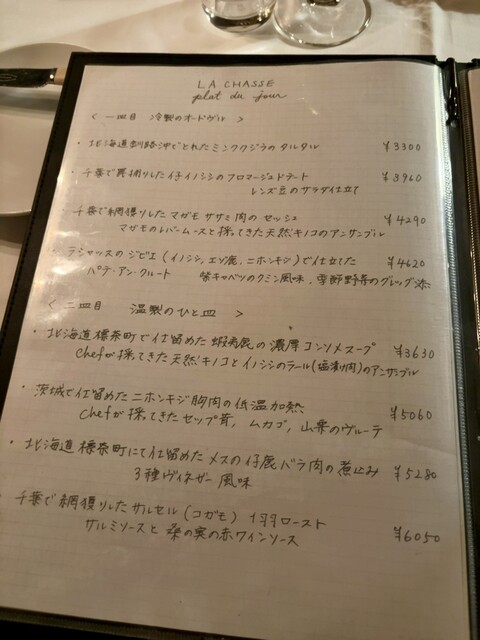 LA CHASSE
plat du jour
< 一皿目 冷製のオードヴル >
・北海道釧路沖でとれたミンククジラのタルタル ¥3300
・千葉で罠捕りした仔イノシシのフロマージュドテート ¥3960
レンズ豆のサラダ仕立て
千葉で網獲りしたマガモ ササミ肉のセッシュ ¥4290
マガモのレバームースと採ってきた天然キノコのアンサンブル
・ラシャッスのジビエ(イノシシ,エゾ鹿,ニホンキジ)で仕立てた ¥4620
パテ・アン・クルート 紫キャベツのクミン風味,季節野菜のグレッグ添
< 二皿目 温製のひと皿 >
・北海道標茶町で仕留めた蝦夷鹿の濃厚コンソメスープ ¥3630
chefが採ってきた天然キノコとイノシシのラール(塩漬け肉)のアンサンブル
茨城で仕留めたニホンキジ胸肉の低温加熱 ¥5060
chefが採ってきたセップ茸,ムカゴ,山栗のヴルーテ
・北海道標茶町にて仕留めたメスの仔鹿バラ肉の煮込み ¥5280
3種ヴィネガー風味
千葉で網獲りしたサルセル(コガモ) 1羽ロースト ¥6050
サルミソースと桑の実の赤ワインソース